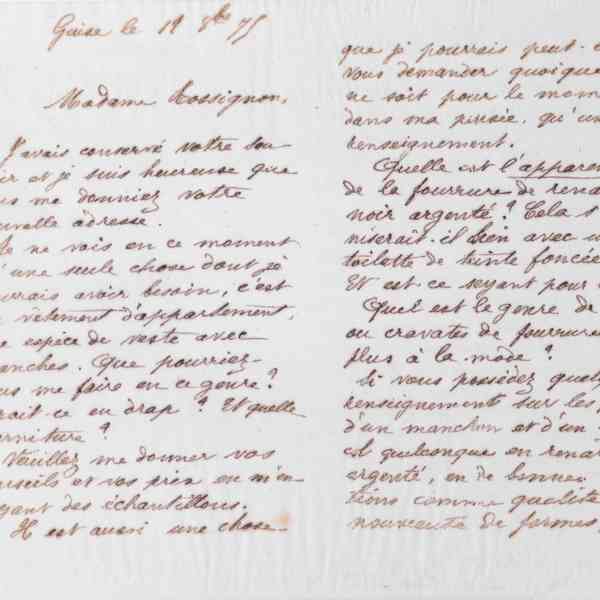 Guise le 19 8bre 75
Madame Rossignon,
J'avais conservé votre sou-
ir et je suis heureuse que
us me donniez votre
uvelle adresse.
Je ne vois en ce moment
'une seule chose dont je
urrais avoir besoin, c'est
vêtement d'appartement,
e espèce de veste avec
anches. Que pourriez-
us me faire en ce genre?
rait-ce en drap? Et quelle
rniture?
Veuillez me donner vos
nseils et vos prix en m'en-
yant des échantillons.
Il est aussi une chose
que je pourrais peut-ê
vous demander quoique
ne soit pour le mome
dans ma pensée, qu'un
renseignement.
Quelle est l'apparen
de la fourrure de rena
noir argenté? Cela s
niserait-il bien avec u
toilette de teinte foncée
Et est-ce seyant pour
Quel est le genre de
ou cravates de fourrure
plus à la mode?
Si vous possédez quelq
renseignements sur les
d'un manchon et d'un
col quelconque en renar
argenté, en de bonnes
tions comme qualité
nouveauté de formes,